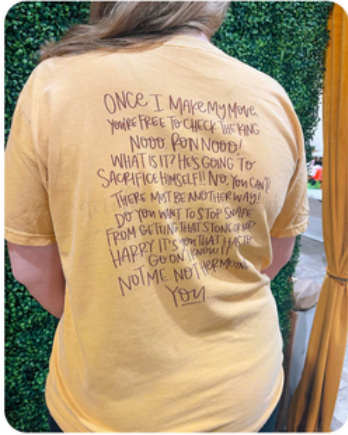 ONCE I MAKE MY MOVE
YOU'RE FREE TO CHECK THE KING
NOOO RON NOOO!
WHAT IS IT? HE'S GOING TO
SACRIFICE HIMSELF!! NO, YOU CAN'T!
THERE MUST BE ANOTHER WAY!
DO YOU WANT TO STOP SNAPE
FROM GETTING THAT STONE OR NOT
HARRY IT'S YOU THAT HAS TO
GO ON I KNOW IT
NOT ME NOT HERMOINE
YOU